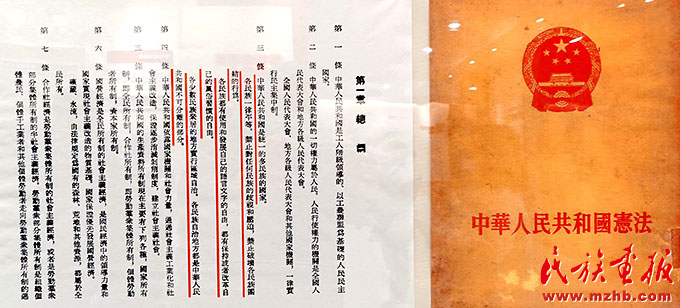 第一章 總綱
第一條 中華人民共和國是工人階級領導的、以工農聯盟爲基礎的人民民主
國家。
第二條 中華人民共和國的一切權力屬於人民。人民行使權力的機關是全國人
民代表大會和地方各級人民代表大會。
全國人民代表大會、地方各級人民代表大會和其他國家機關，一律實
行民主集中制。
第三條 中華人民共和國是統一的多民族的國家。
各民族一律平等。禁止對任何民族的歧視和壓迫，禁止破壞各民族團
結的行爲。
各民族都有使用和發展自己的語言文字的自由，都有保持或者改革自
己的風俗習慣的自由。
各少數民族聚居的地方實行區域自治。各民族自治地方都是中華人民
共和國不可分離的部分。
第四條 中華人民共和國依靠國家機關和社會力量，通過社會主義工業化和社
會主義改造，保證逐步消滅剝削制度，建立社會主義社會。
第五條 中華人民共和國的生產資料所有制現在主要有下列各種：國家所有
制，即全民所有制；合作社所有制，即勞動羣衆集體所有制；個體勞動
者所有制；資本家所有制。
第六條 國營經濟是全民所有制的社會主義經濟，是國民經濟中的領導力量和
國家實現社會主義改造的物質基礎。國家保證優先發展國營經濟。
礦藏、水流，由法律規定爲國有的森林、荒地和其他資源，都屬於全
民所有。
第七條 合作社經濟是勞動羣衆集體所有制的社會主義經濟，或者是勞動羣衆
部分集體所有制的半社會主義經濟。勞動羣衆部分集體所有制是組織個
體農民、個體手工業者和其他個體勞動者走向勞動羣衆集體所有制的過
中華人民共和國憲法
民族画报
www.mzhb.com